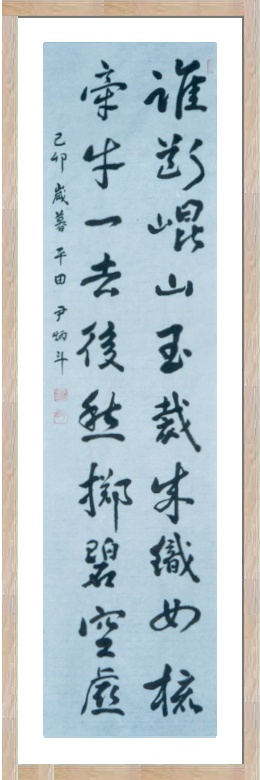 誰斷崐山玉裁成織女梳
牽牛一去後愁擲碧空虛
己卯歲暮 平田 尹炳斗